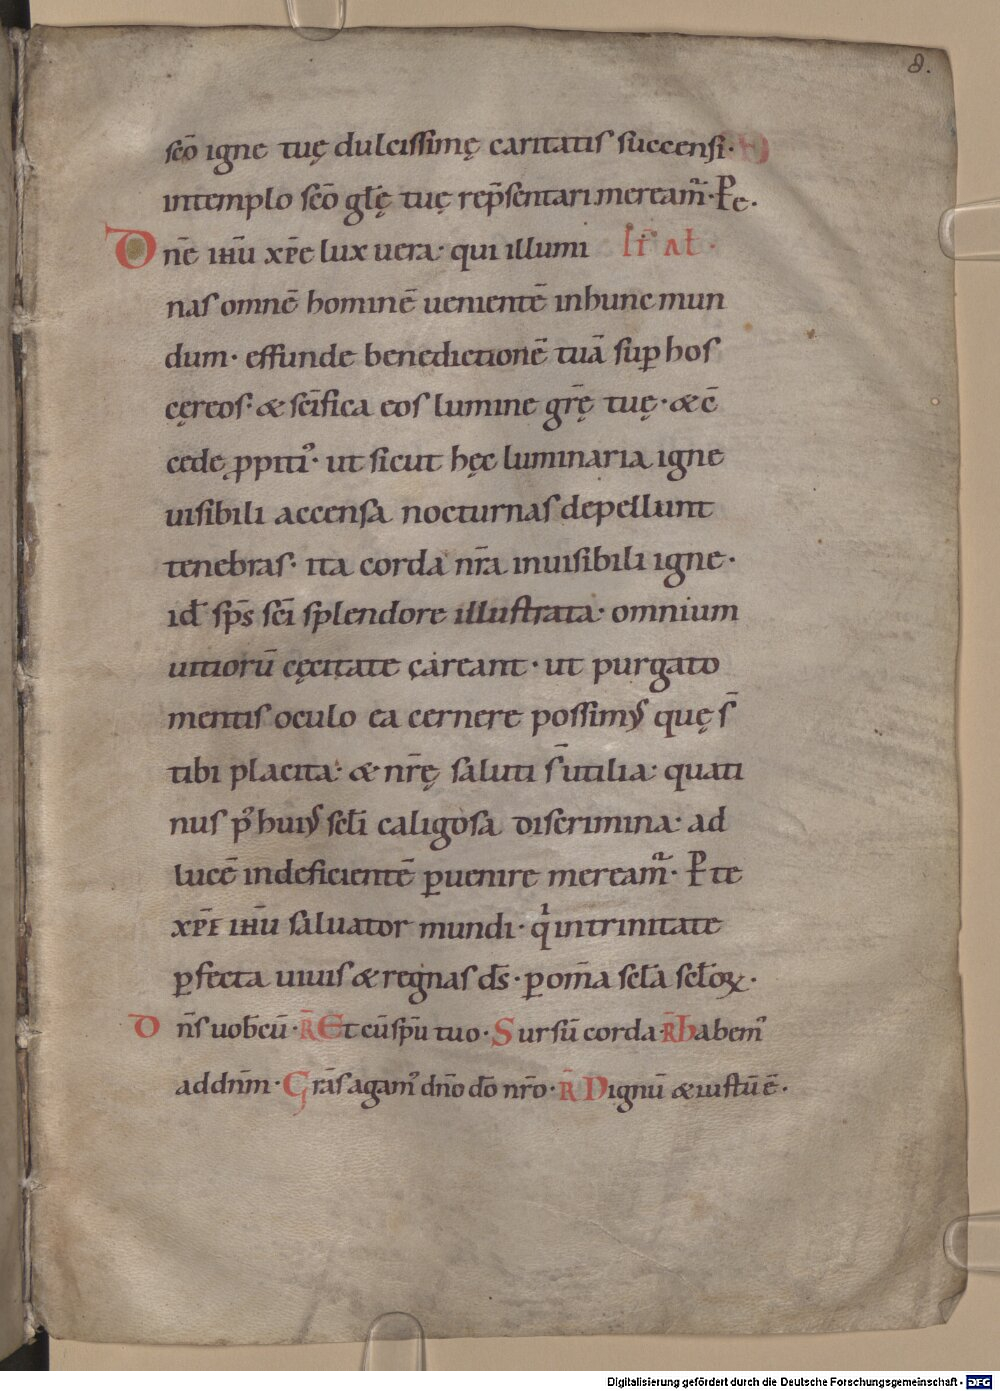 8.
scō igne tuę dulcissimę caritatis succensi·
intemplo scō głę tuę rep̄sentari meream̄·P̱e.
Dn̄e ihū xp̄e lux uera· qui illumi It̄ al̄·
nas omnē hominē uenientē inhunc mun
dum· effunde benedictionē tuā sup̱ hos
cęreos· & scīfica eos lumine gr̄ę tuę· &c̄
cede ꝓpiti᾽· ut sicut hęc luminaria igne
uisibili accensa nocturnas depellunt
tenebras· ita corda nr̄a inuisibili igne·
id̄ sp̄s sc̄i splendore illustrata· omnium
uitiorū cęcitate careant· ut purgato
mentis oculo ea cernere possimꝰ quę s̄
tibi placita· & nr̄ę saluti s̄ utilia· quati
nus p᾽ huiꝰ sc̄łi caligosa discrimina· ad
lucē indeficientē ꝑuenire meream̄· P̱ te
xp̄e ihū saluator mundi· qͥ intrinitate
ꝑfecta uiuis & regnas d̄s· ꝑ om̄a sc̄ła sc̄łoꝝ·
Dn̄s uob̄cū· R̄ Et cū sp̄u tuo· Sursū corda R̄ habem᾽
addn̄m· Grās agam᾽ dn̄o dō nr̄o· R̄ Dignū & iustū ē·
Digitalisierung gefördert durch die Deutsche Forschungsgemeinschaft - DFG